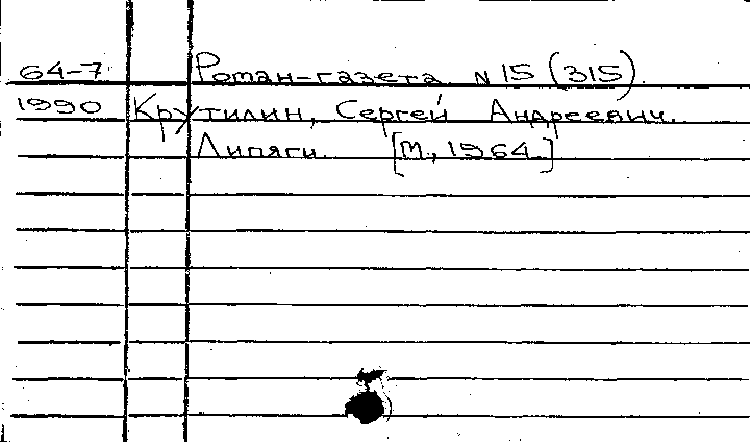 64-7 Роман-газета N 15 (315).
1990 Крутилин, Сергей Андреевич.
Липяги. [М., 1964.]